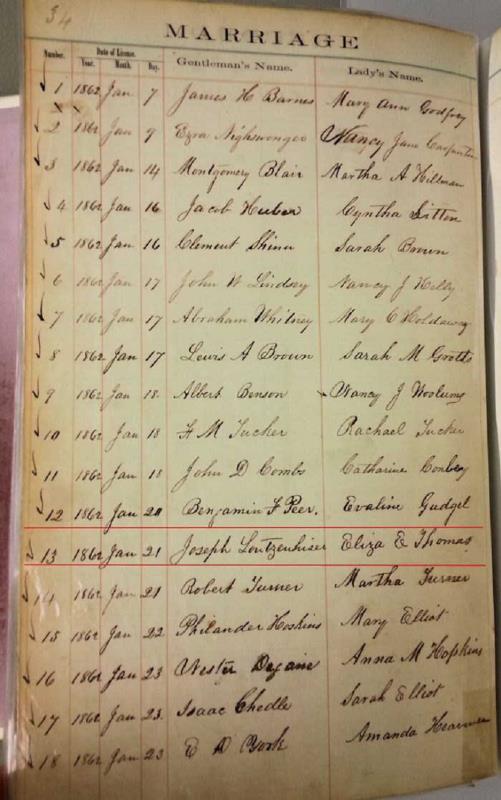 34
MARRIAGE
Number. Date of License. Gentleman's Name. Lady's Name.
Year. Month. Day.
1 1862 Jan 7 James H Barnes Mary Ann Godfrey
2 1862 Jan 9 Ezra Nighswonger Nancy Jane Carpenter
3 1862 Jan 14 Montgomery Blair Martha A Hillman
4 1862 Jan 16 Jacob Huber Cyntha Sitton
5 1862 Jan 16 Clement Shinn Sarah Brown
6 1862 Jan 17 John W Lindsey Nancy J Kelly
7 1862 Jan 17 Abraham Whitney Mary C Holdaway
8 1862 Jan 17 Lewis A Brown Sarah M Grotts
9 1862 Jan 18 Albert Benson Nancy J Woolums
10 1862 Jan 18 F M Tucker Rachael Tucker
11 1862 Jan 18 John D Combs Catharine
12 1862 Jan 20 Benjamin F Peer. Evaline Gudgel
13 1862 Jan 21 Joseph Loutzenhiser Eliza E Thomas
14 1862 Jan 21 Robert Turner Martha Turner
15 1862 Jan 22 Philander Hoskins Mary Elliot
16 1862 Jan 23 Anna M Hopkins
17 1862 Jan 23. Isaac Chedle Sarah Elliot
18 1862 Jan 23 E D York Amanda